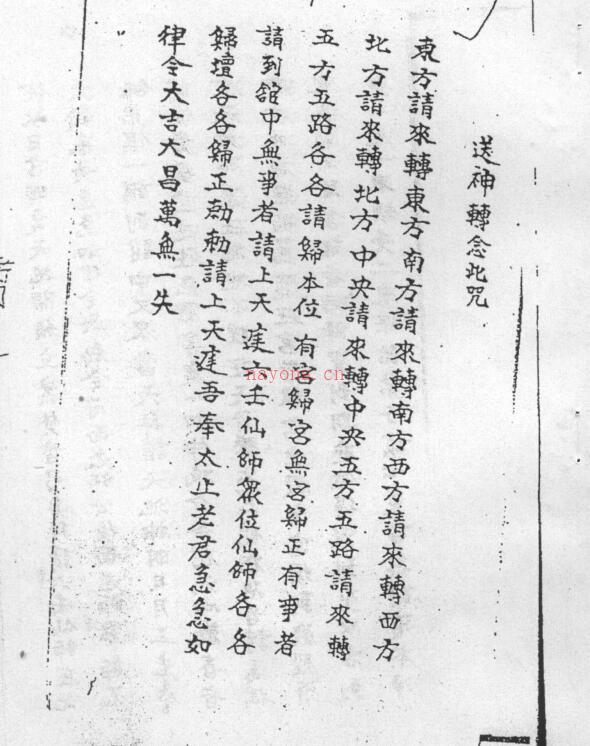 送神轉念此咒
東方請來轉東方南方請來轉南方西方請來轉西方
北方請來轉北方中央請來轉中央五方五路請來轉
五方五路各各請歸本位有宮歸宮無宮歸正有事者
請到舘中無事者請上天遙六壬仙師眾位仙師各各
歸壇各各歸正勅勅請上天遙吾奉太上老君急急如
律令大吉大昌萬無一失
nayong.cn